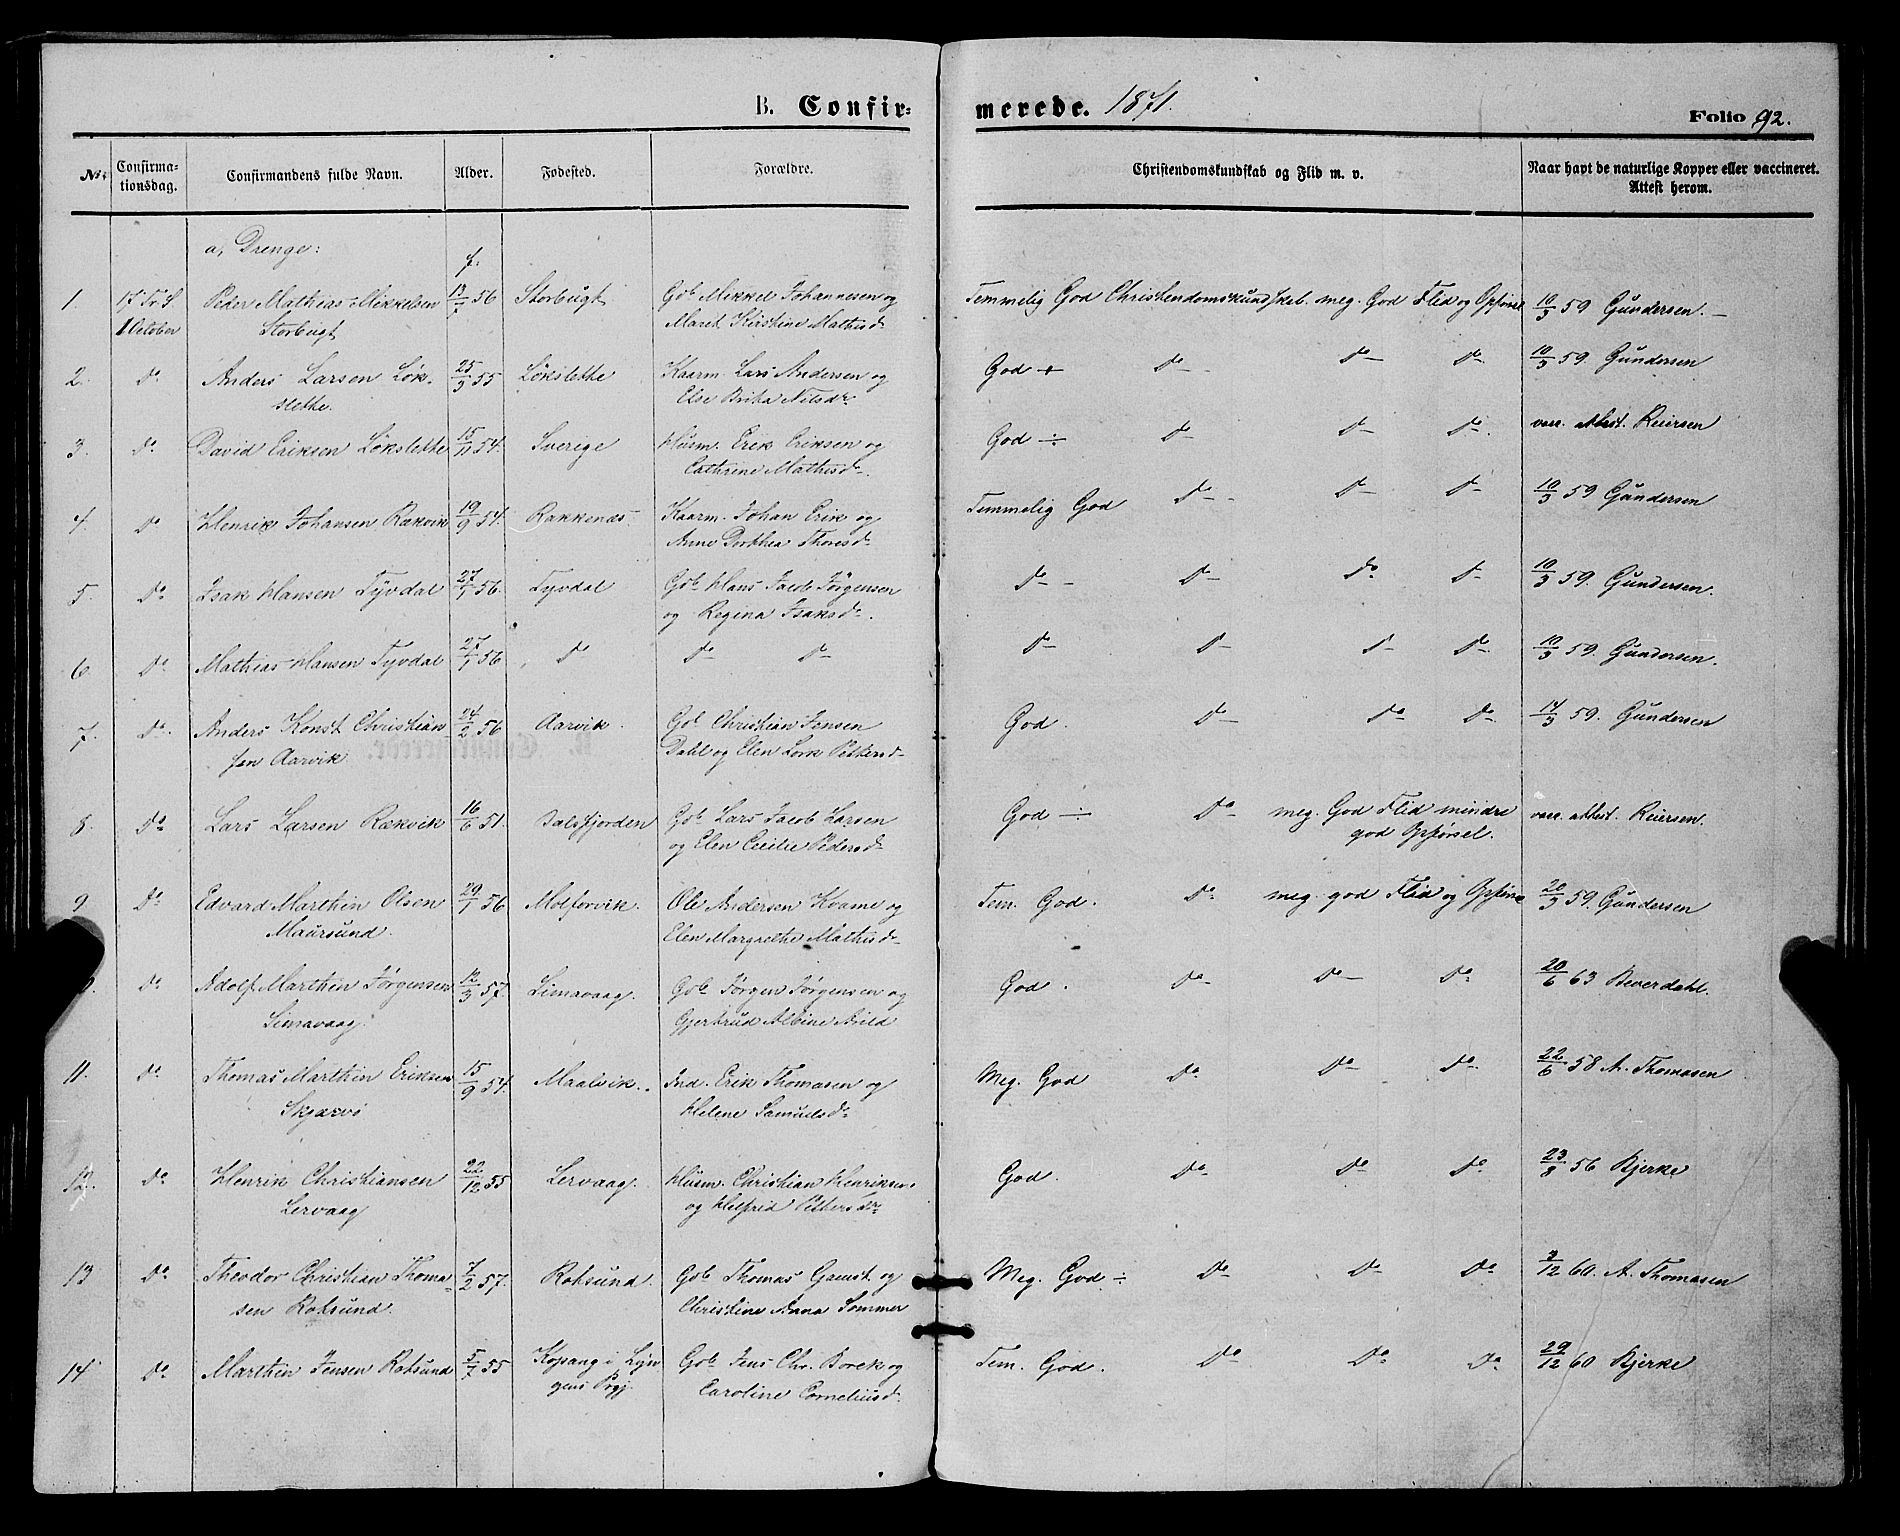 B. Confir-merede. 1871. Folio 92.
No. Confirmationsdag. Confirmandens fulde Navn. Alder. Fødested. Forældre. Christendomskundskab og Flid m. v. Naar havt de naturlige Kopper eller vaccineret. Attest herom.
a, Drenge: f.
1. 17 Tr. S. Peder Mathias Mikkelsen 13/7 56 Storbugt Gdb Mikkel Johannesen og Temmelig God Christendomskundskab. meg. God Flid og Opførsel 10/3 59 Gundersen.
1 October Storbugt Maret Kirstine Mathisd
2. Do Anders Larsen Løk- 25/3 55 Løkslette Kaarm. Lars Andersen og God + Do Do Do 10/3 59. Gundersen
slette. Else Brita Nilsdr
3. Do David Eriksen Løkslette 15/11 54. Sverige Husm. Erik Eriksen og God ÷ Do Do Do vacc. attest. Reiersen
Cathrine Mathisd.
4. Do Henrik Johansen Rækvik 19/9 54. Rakkenæs. Kaarm. Johan Erik og Temmelig God Do Do Do 10/3 59 Gundersen
Anne Dorthea Thoresd
5. Do Isak Hansen Tyvdal 27/1 56. Tyvdal Gdb Hans Jacob Jørgensen Do Do Do Do 10/3 59. Gundersen.
og Regina Isaksd.
6. Do Mathias Hansen Tyvdal 27/1 56. Do Do Do Do Do Do Do 10/3 59. Gundersen.
7. Do Anders Konst Christian 24/2 56 Aarvik. Gdb Christian Jensen God. Do Do Do 14/3 59. Gundersen
sen Aarvik Dahl og Elen Lork Pettersd
8. Do Lars Larsen Rækvik 16/6 51. Balsfjorden Gdb Lars Jacob Larsen God ÷ Do meg. God Flid mindre vacc. attest. Reiersen.
og Elen Cecilie Pedersd god Opførsel.
9. Do Edvard Marthin Olsen 29/1 56 Molforvik. Ole Andersen Kvame og Tem. God. Do meg. god Flid og Opførsel 20/3 59. Gundersen
Maursund. Elen Margrethe Mathisd
Do Adolf Marthin Jørgensen 12/3 57. Simavaag. Gdb Jørgen Jørgensen og God. Do Do Do 20/6 63 Beverdahl.
Simavaag. Gjertrud Albine Arild
11. Do Thomas Marthin Eriksen 15/9 54. Maalvik. Ind. Erik Thomasen og Meg. God Do Do Do 22/6 58 A. Thomasen
Skjærvø Helene Samuelsd
12. Do Henrik Christiansen 22/12 55 Lervaag. Husm. Christian Henriksen God. Do Do Do 23/8 56 Bjerke
Lervaag og Helfrid Pettersdr
13 Do Theodor Christian Thoma 7/2 57. Rotsund. Gdb Thomas Gamst og Meg. God ÷ Do Do Do 3/12 60. A. Thomasen
sen Rotsund. Christine Anna Sommer
14 Do Marthin Jensen Rotsund 5/7 55 Kopang i Lyn Gdb Jens Chr. Borck og Tem. God. Do Do Do 29/12 60 Bjerke
gens Prgj. Caroline Corneliusd.